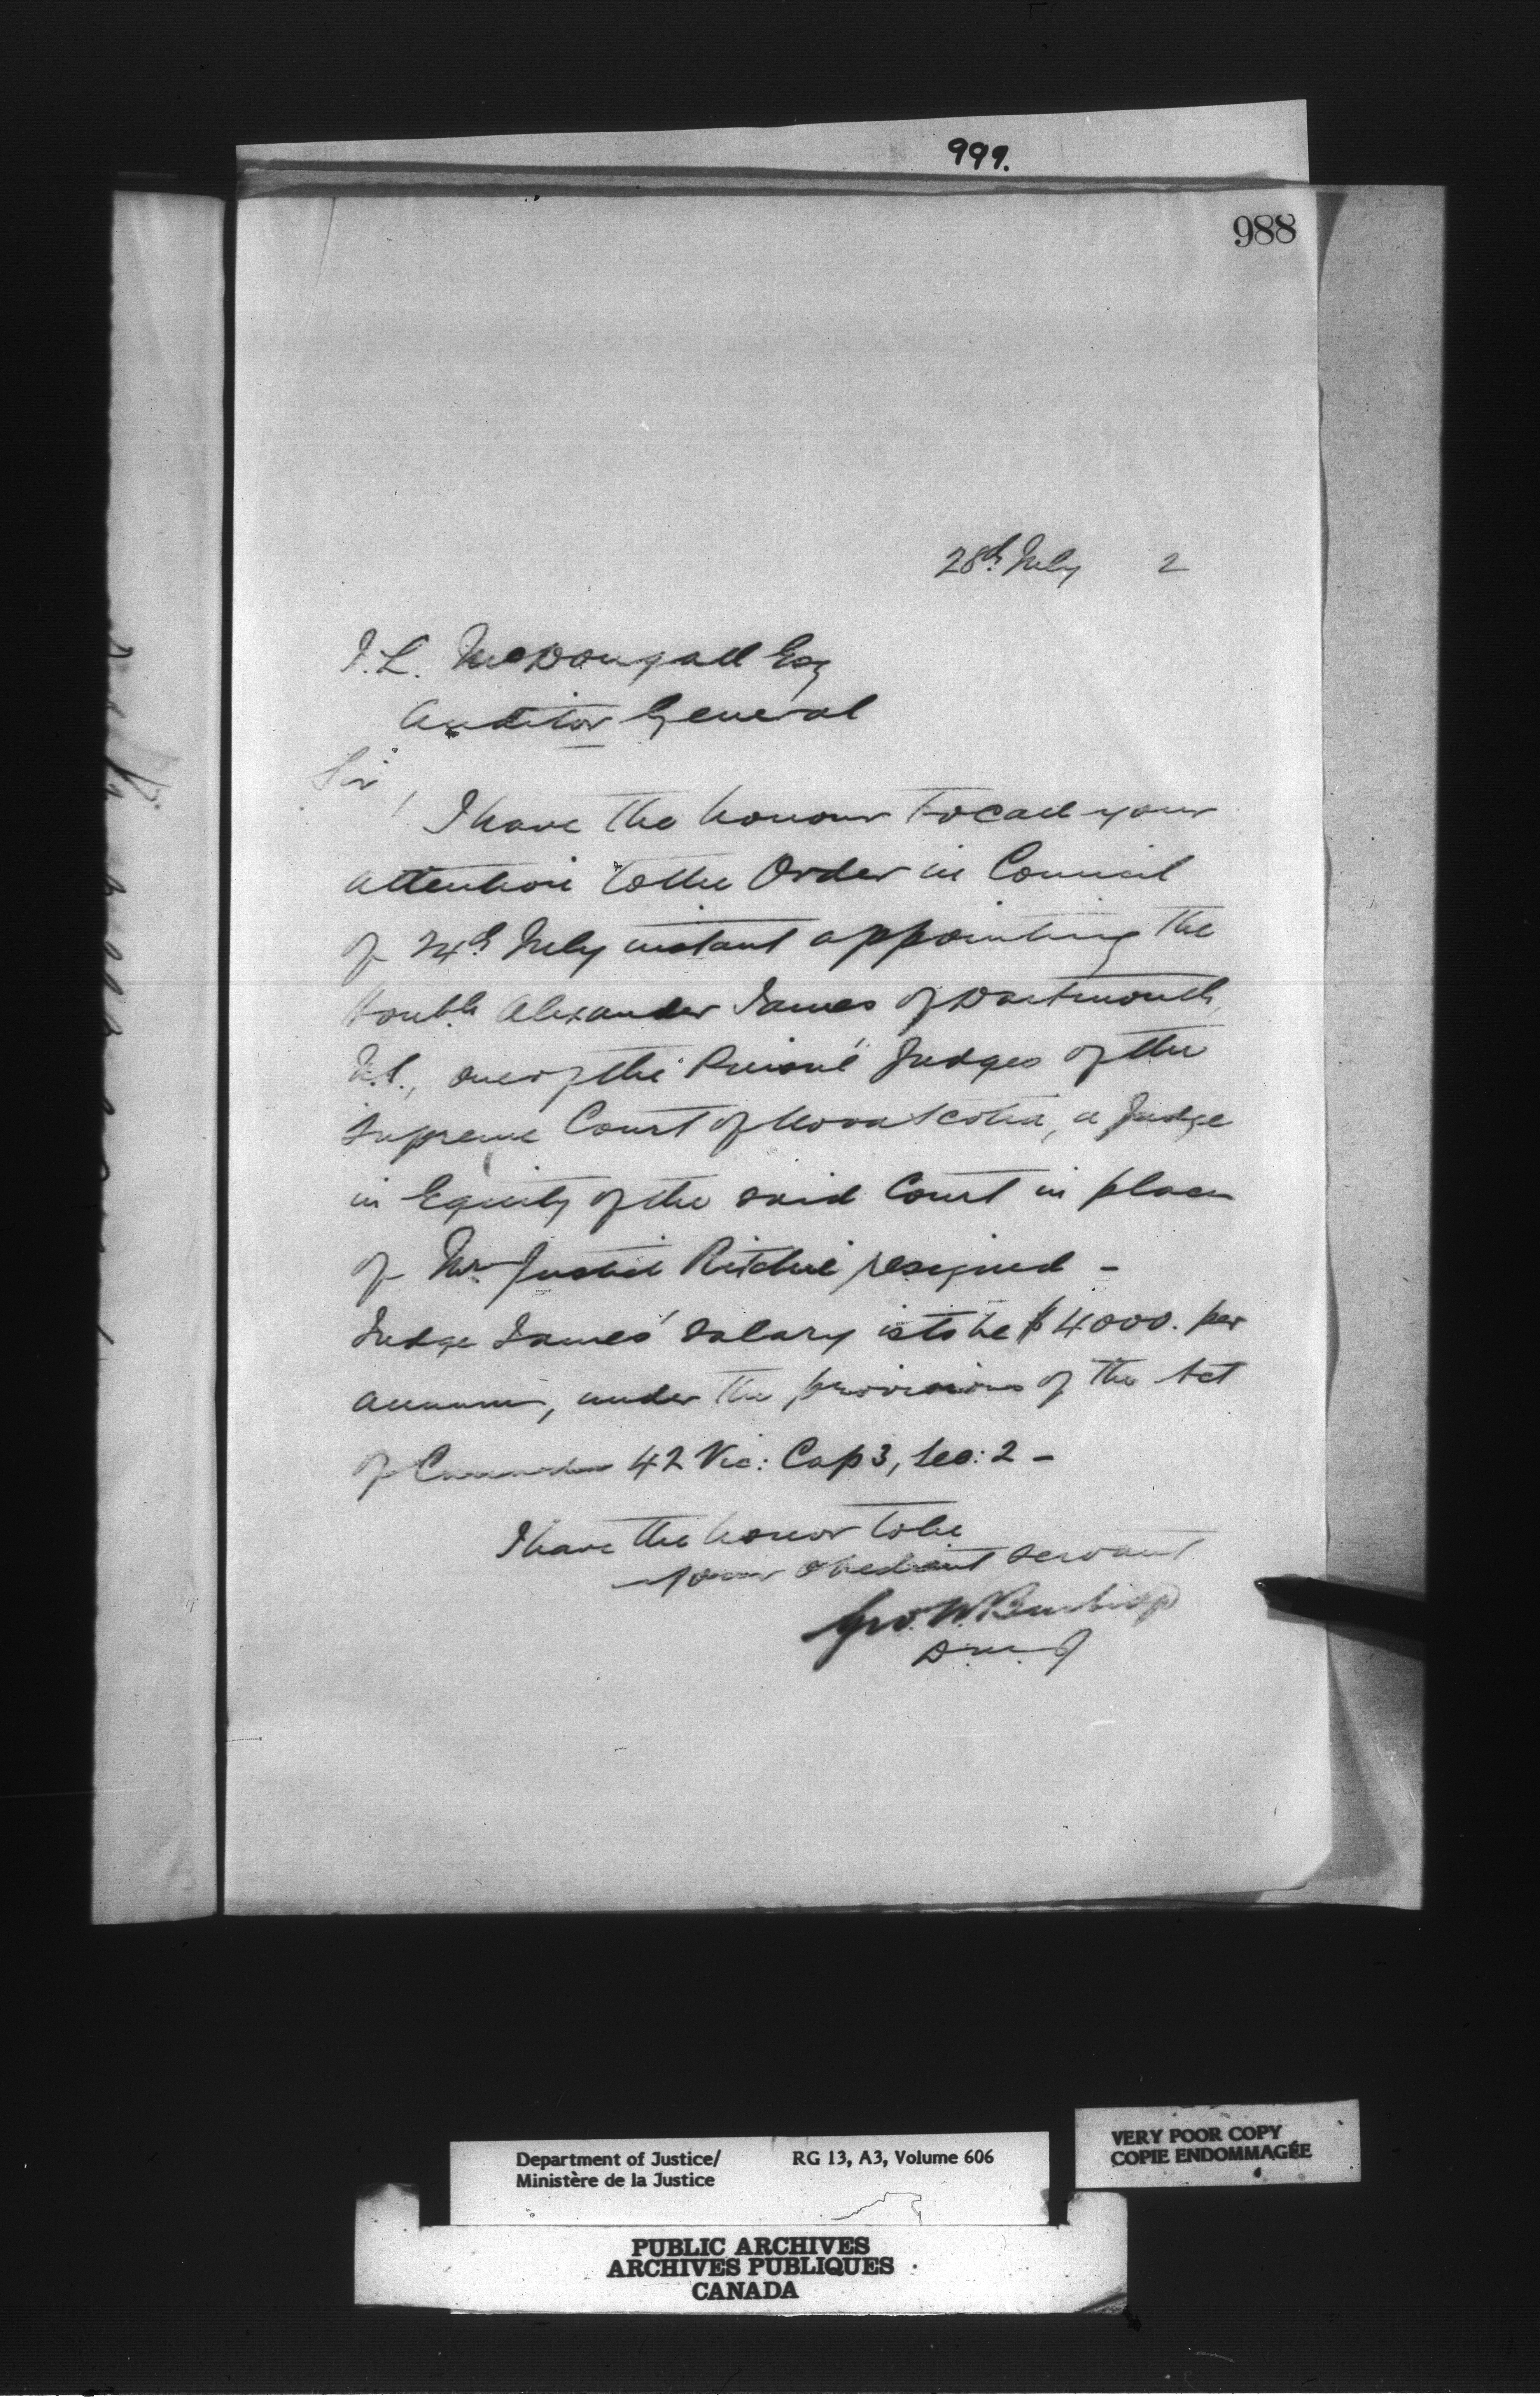 999.
988
28th July 2
J. L. McDougall Esq
Auditor General
Sir,
I have the honour to call your
attention to the Order in Council
of 24th July instant appointing the
Honble Alexander James of Dartmouth,
N.S., one of the Puisné Judges of the
Supreme Court of Nova Scotia, a Judge
in Equity of the said Court in place
of Mr Justice Ritchie resigned -
Judge James' salary is to be $4000. per
annum, under the provisions of the Act
of Canada 42 Vic: Cap 3, Sec: 2 -
I have the honor to be
your obedient servant
Geo. W. Burbidge
D.M.J
Department of Justice/ RG 13, A3, Volume 606
Ministère de la Justice
VERY POOR COPY
COPIE ENDOMMAGÉE
PUBLIC ARCHIVES
ARCHIVES PUBLIQUES
CANADA